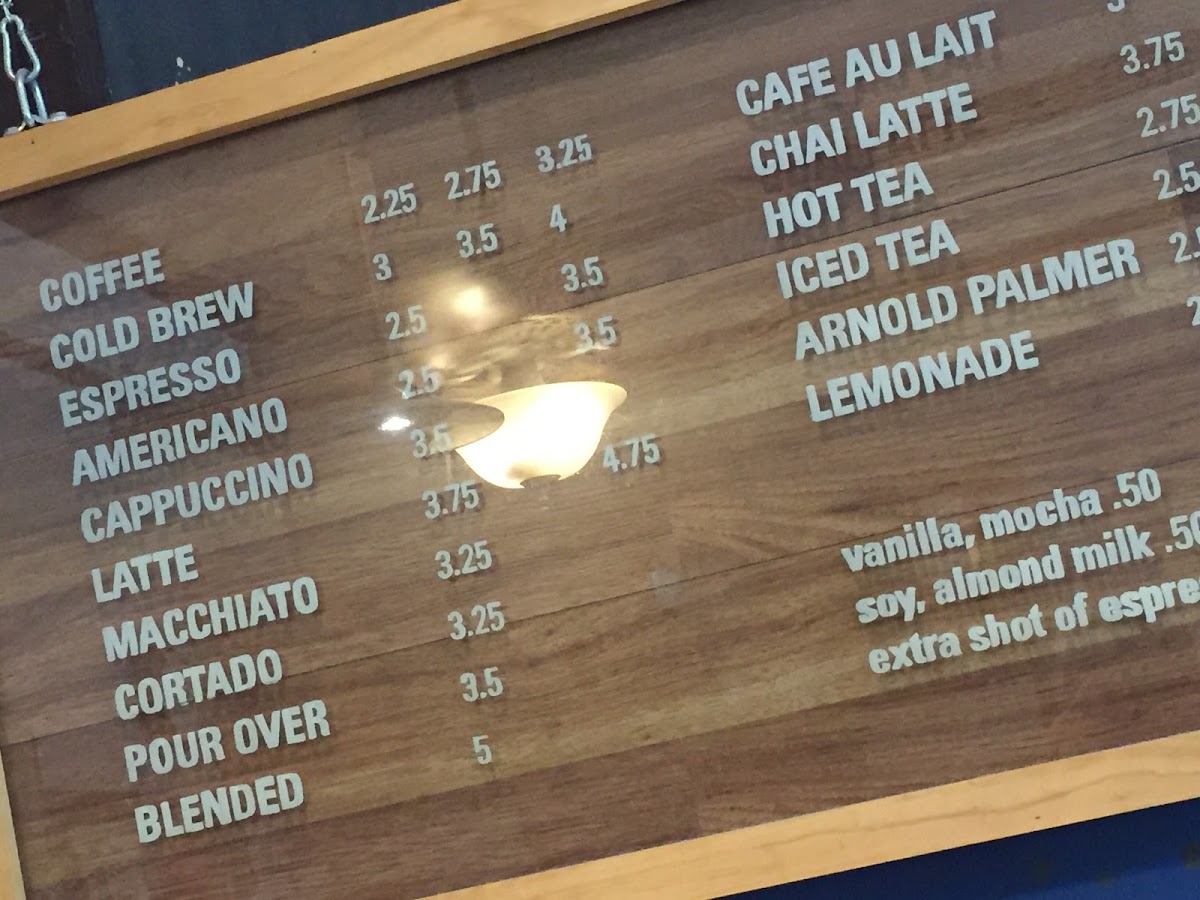 COFFEE 2.25 2.75 3.25
COLD BREW 3 3.5 4
ESPRESSO 2.5 3.5
AMERICANO 2.5 3.5
CAPPUCCINO 3.5
LATTE 3.75 4.75
MACCHIATO 3.25
CORTADO 3.25
POUR OVER 3.5
BLENDED 5
CAFE AU LAIT
CHAI LATTE 3.75
HOT TEA 2.75
ICED TEA 2.5
ARNOLD PALMER
LEMONADE
vanilla, mocha .50
soy, almond milk .50
extra shot of espre